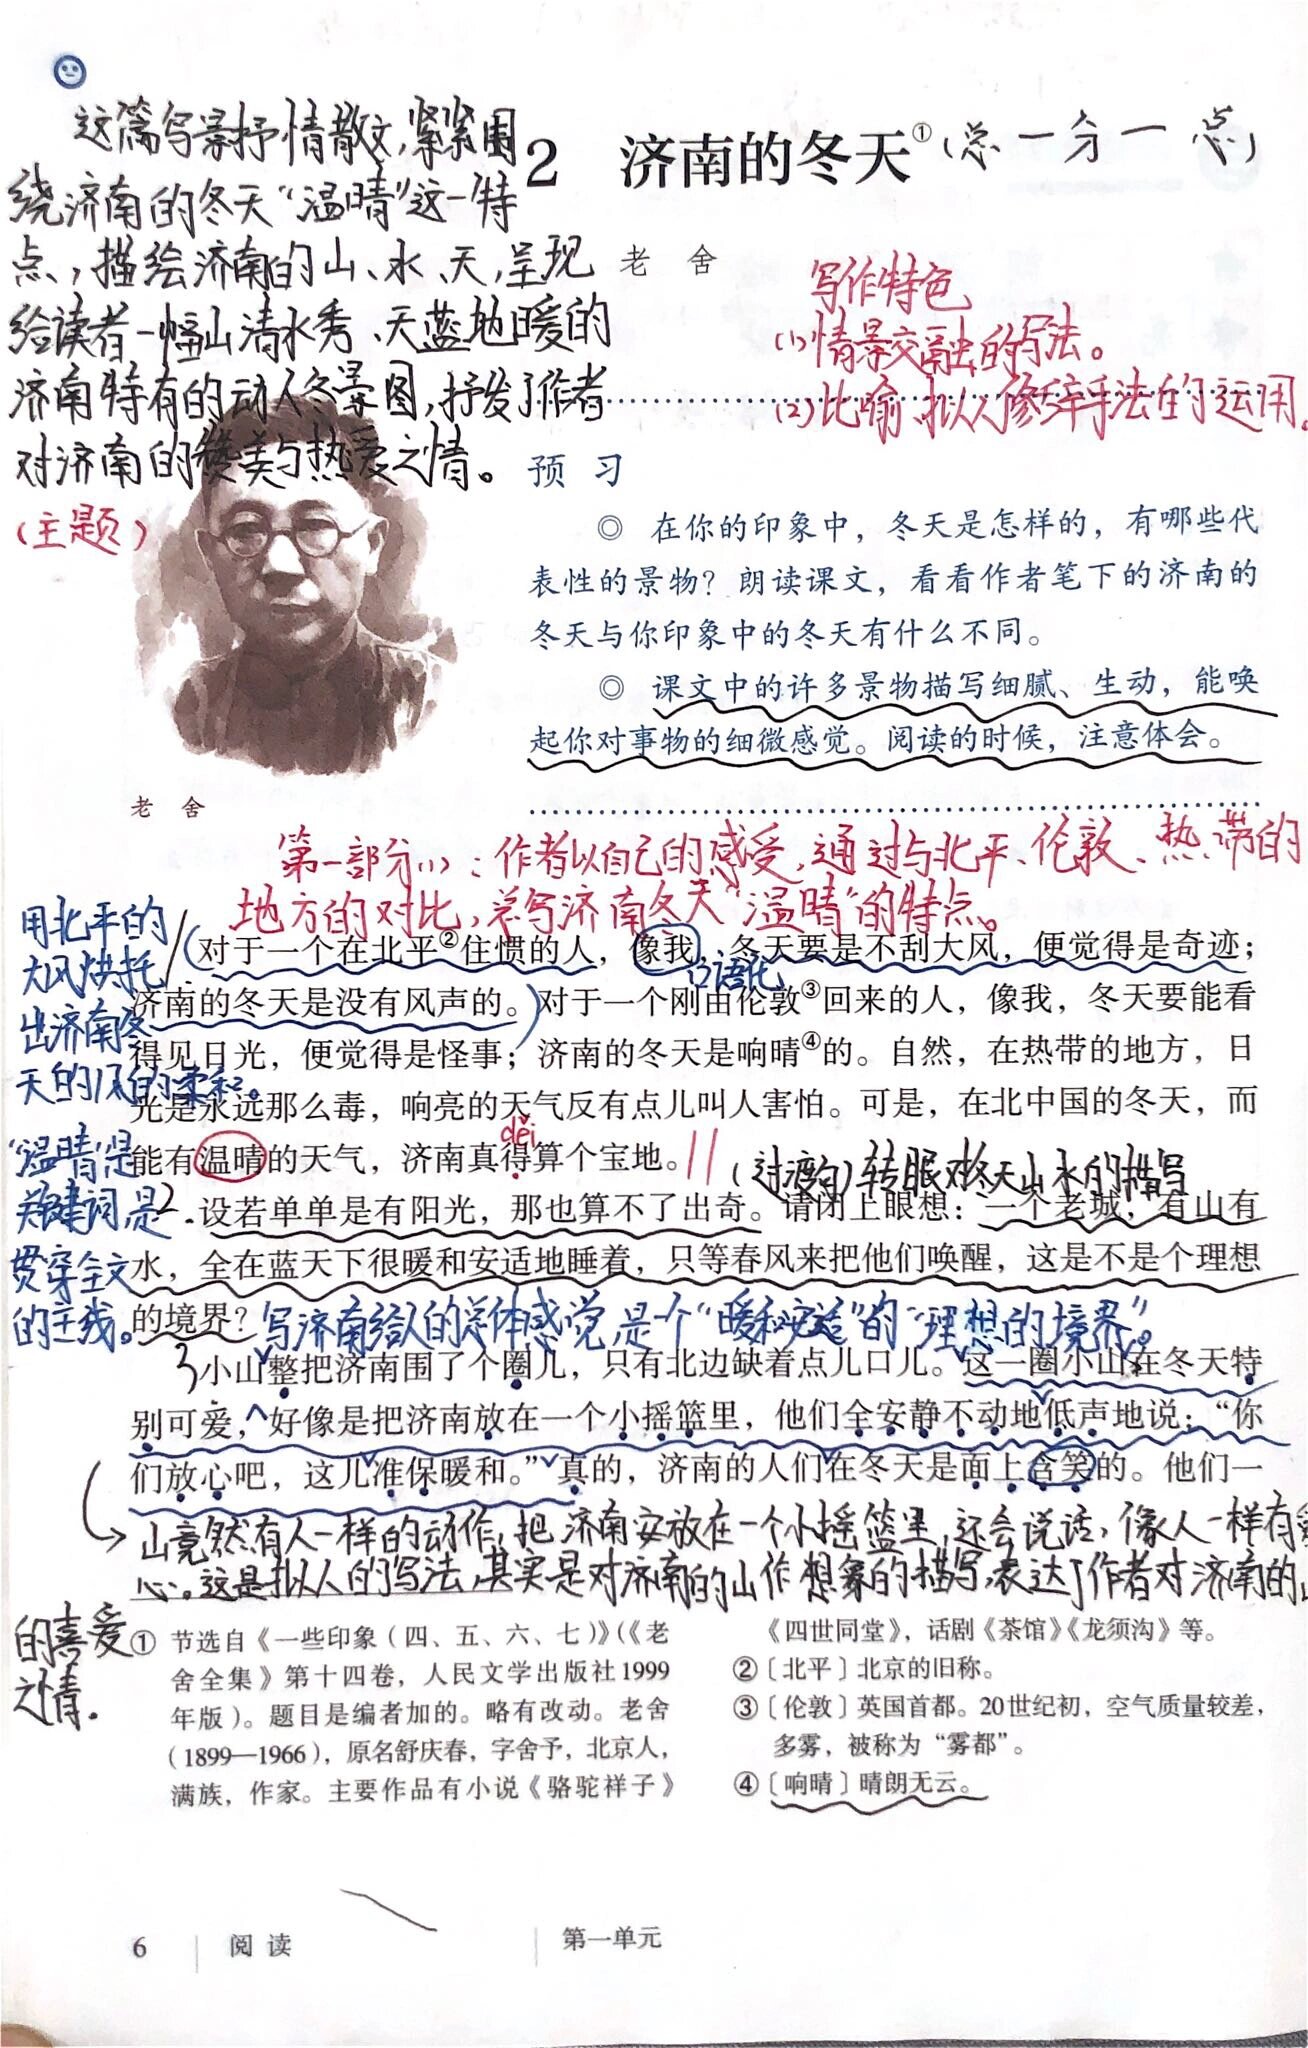 这篇写景抒情散文,紧紧围
绕济南的冬天“温晴”这一特
点,描绘济南的山、水、天,呈现
给读者一幅山清水秀、天蓝地暖的
济南特有的动人冬景图,抒发了作者
对济南的赞美与热爱之情。
(主题)
2 济南的冬天①(总一分一总)
老 舍
写作特色
(1)情景交融的写法。
(2)比喻、拟人修辞手法的运用。
预 习
◎ 在你的印象中，冬天是怎样的，有哪些代
表性的景物？朗读课文，看看作者笔下的济南的
冬天与你印象中的冬天有什么不同。
◎ 课文中的许多景物描写细腻、生动，能唤
起你对事物的细微感觉。阅读的时候，注意体会。
老 舍
第一部分(1):作者以自己的感受,通过与北平、伦敦、热带的
地方的对比,总写济南冬天“温晴”的特点。
用北平的
大风烘托
出济南冬
天的风的柔和。
“温晴”是
关键词,是
贯穿全文
的主线。
对于一个在北平②住惯的人，像我，冬天要是不刮大风，便觉得是奇迹；
口语化
济南的冬天是没有风声的。对于一个刚由伦敦③回来的人，像我，冬天要能看
得见日光，便觉得是怪事；济南的冬天是响晴④的。自然，在热带的地方，日
光是永远那么毒，响亮的天气反有点儿叫人害怕。可是，在北中国的冬天，而
děi
能有温晴的天气，济南真得算个宝地。
(过渡句)转眼对冬天山水的描写
2.设若单单是有阳光，那也算不了出奇。请闭上眼想：一个老城，有山有
水，全在蓝天下很暖和安适地睡着，只等春风来把他们唤醒，这是不是个理想
的境界？写济南给人的总体感觉,是个“暖和安适”的“理想的境界”。
3小山整把济南围了个圈儿，只有北边缺着点儿口儿。这一圈小山在冬天特
别可爱，好像是把济南放在一个小摇篮里，他们全安静不动地低声地说：“你
们放心吧，这儿准保暖和。”真的，济南的人们在冬天是面上含笑的。他们一
山竟然有人一样的动作,把济南安放在一个小摇篮里,还会说话,像人一样有
心。这是拟人的写法,其实是对济南的山作想象的描写,表达了作者对济南的
的喜爱
之情.
① 节选自《一些印象（四、五、六、七）》（《老
舍全集》第十四卷，人民文学出版社1999
年版）。题目是编者加的。略有改动。老舍
（1899—1966），原名舒庆春，字舍予，北京人，
满族，作家。主要作品有小说《骆驼祥子》
《四世同堂》，话剧《茶馆》《龙须沟》等。
②〔北平〕北京的旧称。
③〔伦敦〕英国首都。20世纪初，空气质量较差，
多雾，被称为“雾都”。
④〔响晴〕晴朗无云。
6 阅 读 第一单元